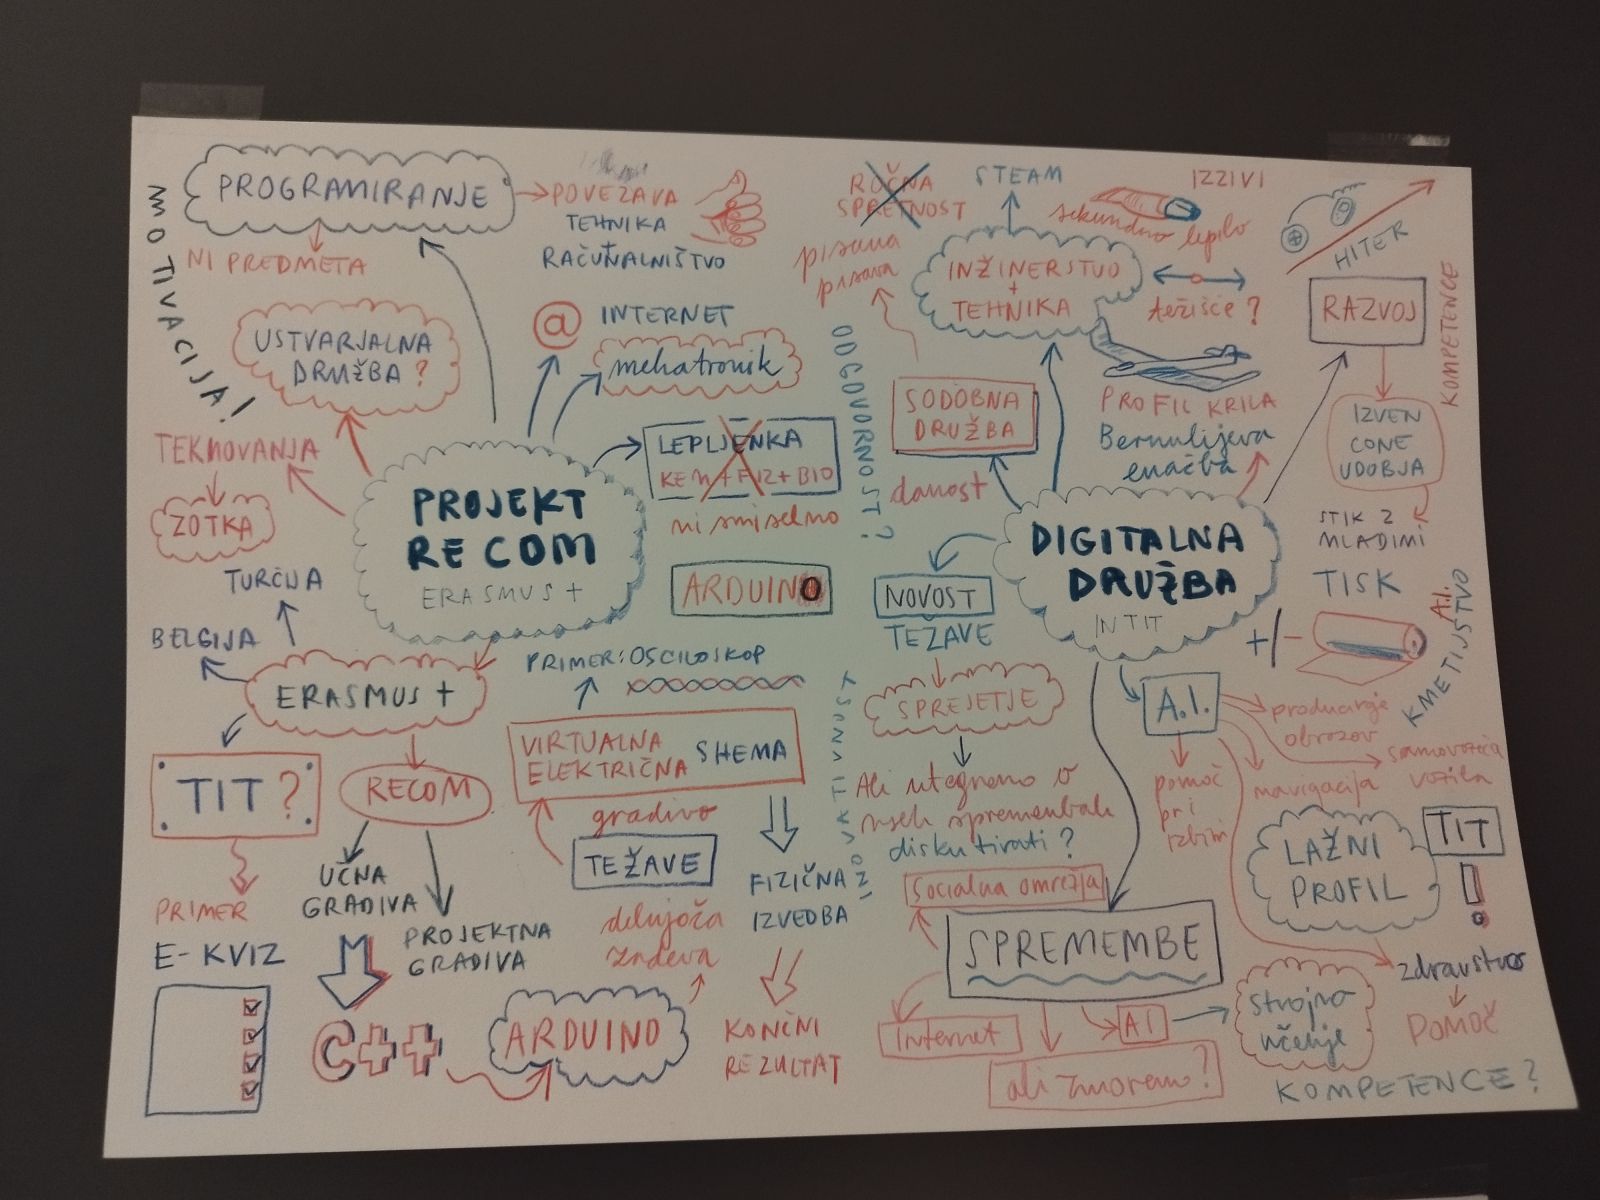 MOTIVACIJA!
PROGRAMIRANJE
NI PREDMETA
POVEZAVA
TEHNIKA
RAČUNALNIŠTVO
USTVARJALNA
DRUŽBA?
@ INTERNET
mehatronik
TEKMOVANJA
ZOTKA
LEPLJENKA
KEM+FIZ+BIO
ni smiselno
PROJEKT
RECOM
ERASMUS +
ARDUINO
TURČIJA
BELGIJA
ERASMUS +
PRIMER: OSCILOSKOP
VIRTUALNA
ELEKTRIČNA SHEMA
gradivo
TEŽAVE
TIT?
RECOM
UČNA
GRADIVA
PROJEKTNA
GRADIVA
PRIMER
E-KVIZ
C++
ARDUINO
delujoča
zadeva
FIZIČNA
IZVEDBA
KONČNI
REZULTAT
INOVATIVNOST
ODGOVORNOST?
ROČNA
SPRETNOST
pisana
pisava
STEAM
IZZIVI
sekundno lepilo
INŽINERSTVO
+
TEHNIKA
težišče?
HITER
RAZVOJ
KOMPETENCE
SODOBNA
DRUŽBA
danost
PROFIL KRILA
Bernulijeva
enačba
IZVEN
CONE
UDOBJA
STIK Z
MLADIMI
DIGITALNA
DRUŽBA
IN TIT
NOVOST
TEŽAVE
SPREJETJE
Ali utegnemo o
vseh spremembah
diskutirati?
TISK
+/-
A.I.
KMETIJSTVO
A.I.
producanje
obrazov
samovozeča
vozila
navigacija
pomoč
pri
izbiri
LAŽNI
PROFIL
TIT
!
socialna omrežja
SPREMEMBE
Internet
AI
ali zmoremo?
strojno
učenje
zdravstvo
POMOČ
KOMPETENCE?